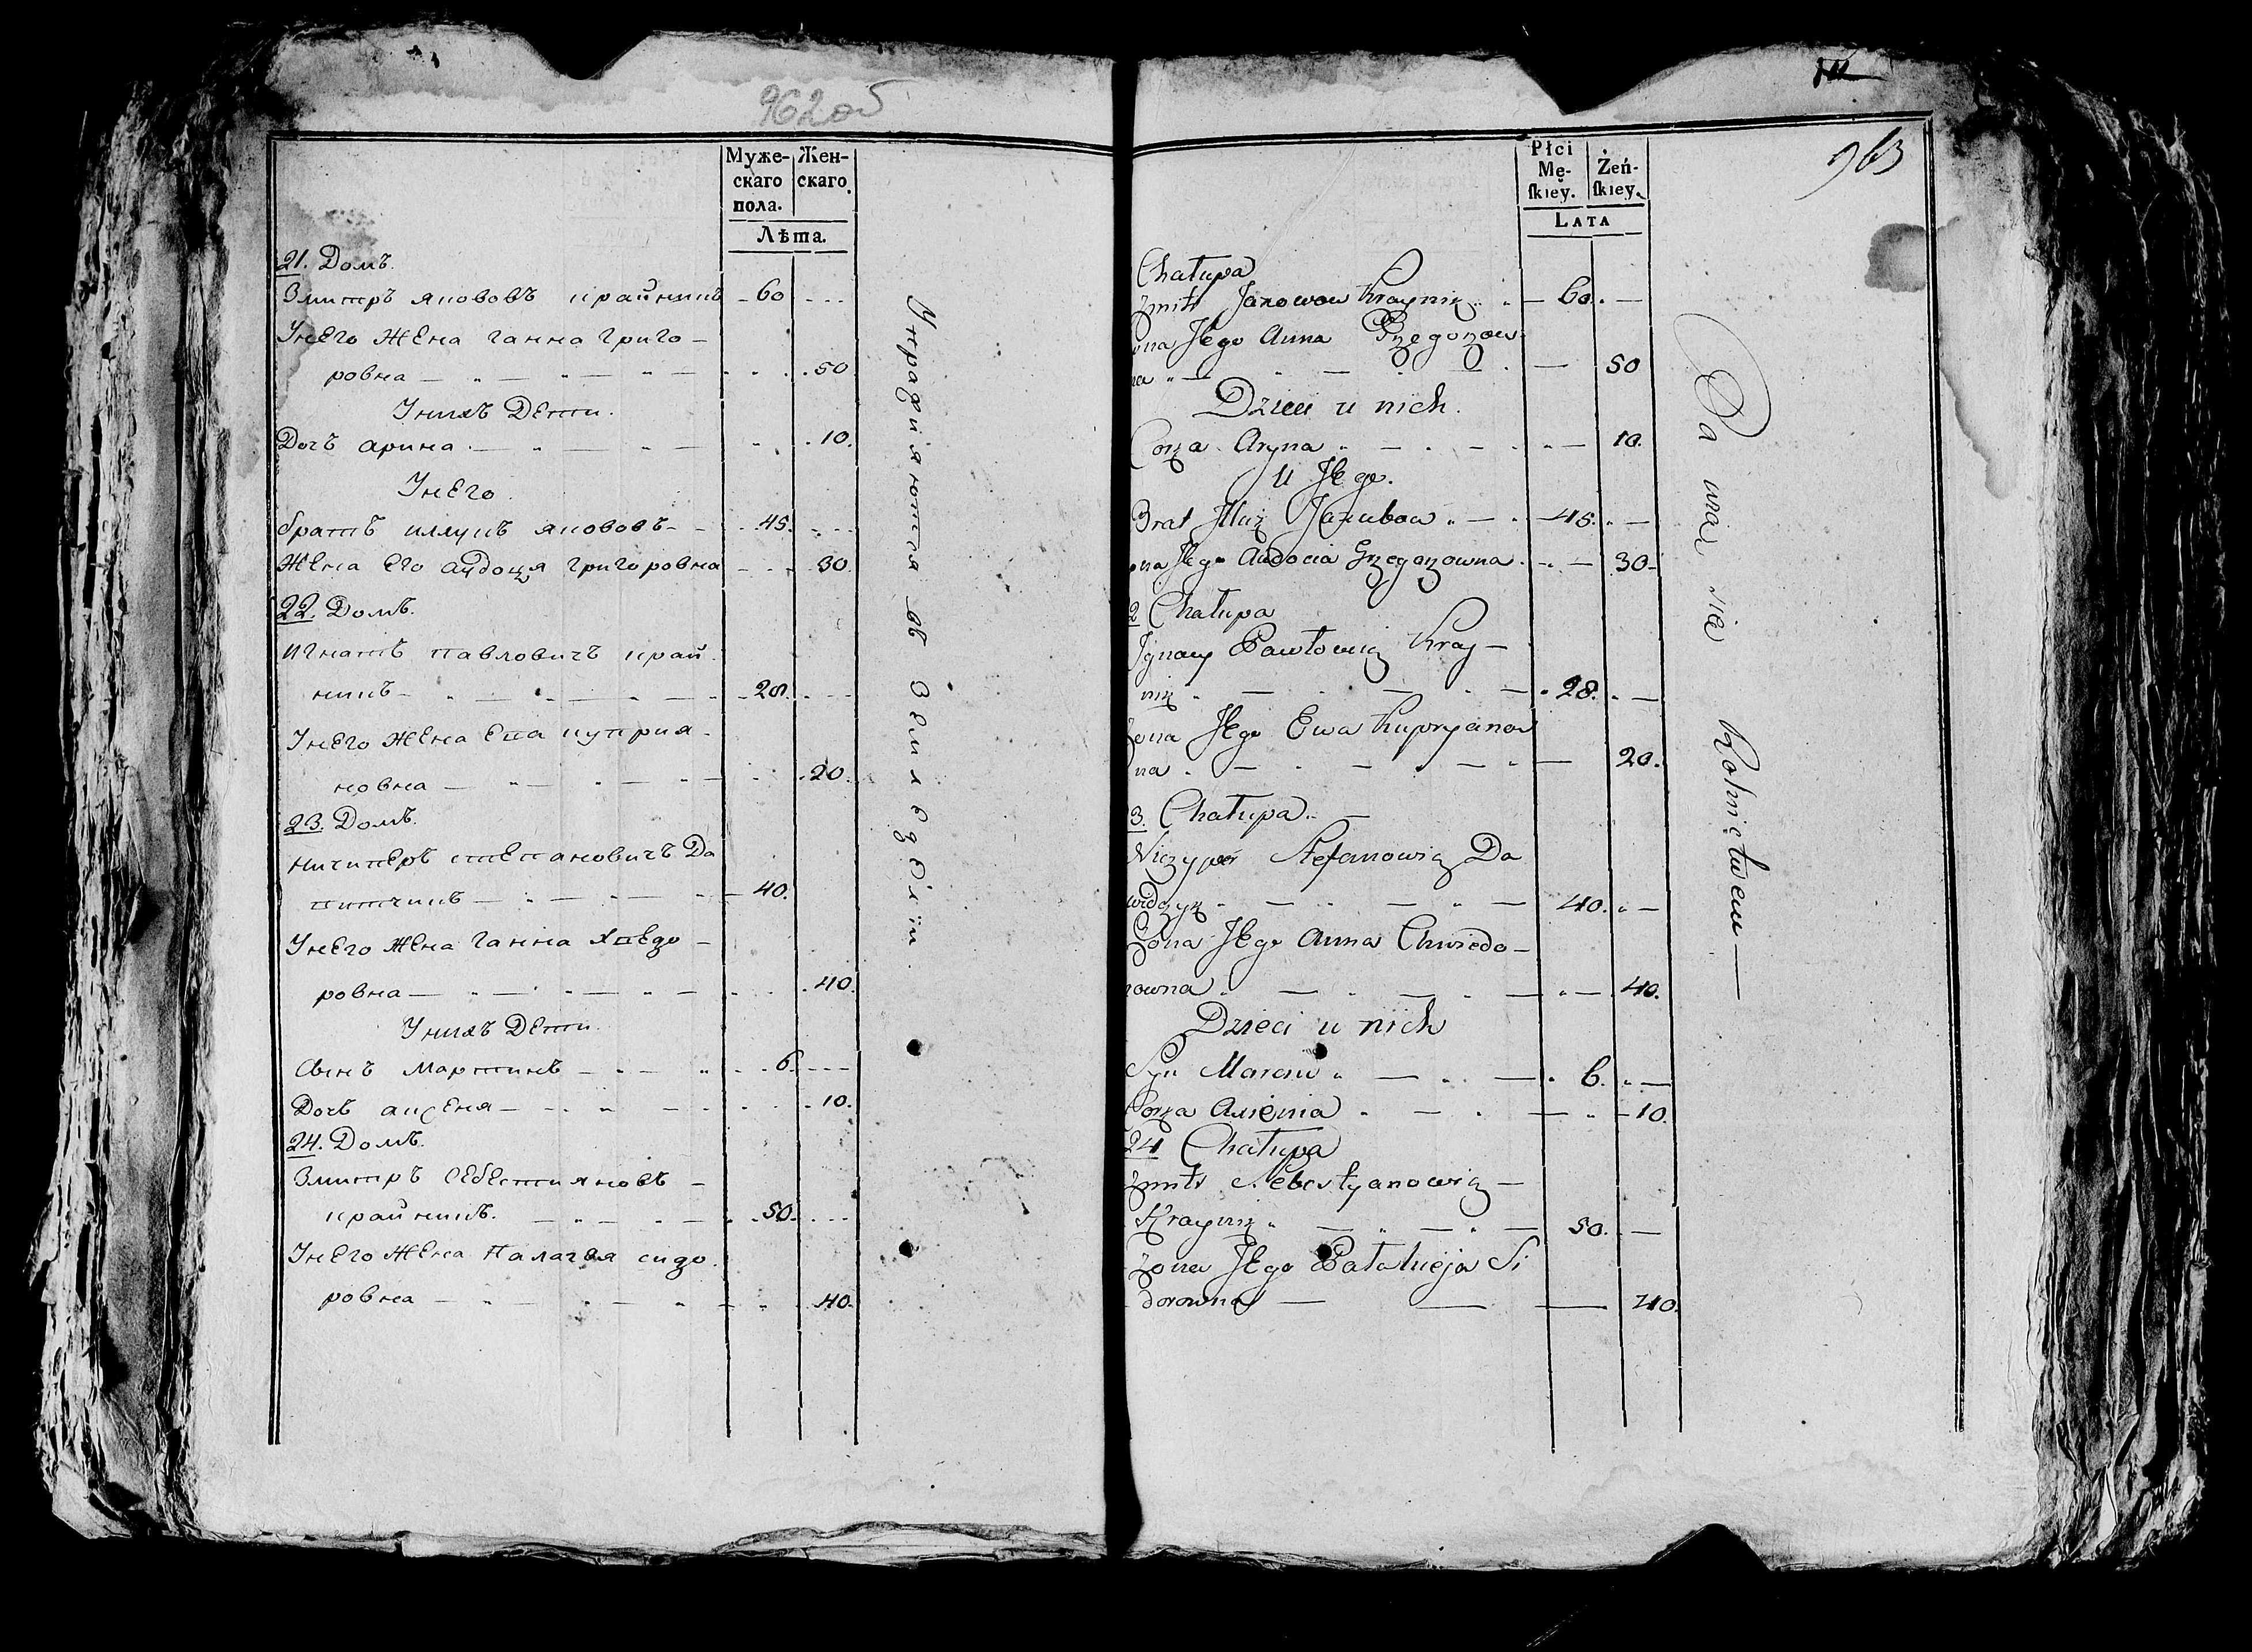 962об
Муже- Жен-
скаго скаго.
пола.
Лѣта.
21. Домъ.
Змитръ янововъ крайникъ 60
Унего жена ганна григо-
ровна 50
Унихъ Дети.
Дочъ арина 10.
Унего.
братъ иллукъ янововъ 45.
Жена его аудоця григоровна 30
22. Домъ.
Игнатъ павловичъ край-
никъ 28.
Унего жена ева куприя-
новна 20.
23. Домъ.
Ничиперъ степановичъ Да
витчикъ 40.
Унего жена ганна хведо-
ровна 40.
Унихъ Дети
Сынъ мартинъ 6.
Дочъ аксеня 10.
24. Домъ.
Змитръ себестияновъ
крайникъ. 50.
Унего жена палагея сидо
ровна 40.
963
Płci
Mę- Żeń-
ſkiey. ſkiey.
LATA
Chałupa
Zmitr Jakowow Krayniк 60.
ona Jego Anna Grzegorzow
na 50
Dzieci u nich.
Corka Aryna 10.
U Jego.
Brat Jlluk Jakubow 45.
ona Jego Audocia Grzegorzowna 30
2 Chałupa
Ignacy Pawłowicz Kray-
nik 28.
Zona Jego Ewa Kupryanow
na 20.
3. Chałupa.
Niczypor Stefanowicz Da
widczyk 40.
Zona Jego Anna Chwiedo-
rowna 40.
Dzieci u nich
Syn Marcin 6.
Corka Axienia 10.
24 Chałupa
Zmitr Sebestyanowicz
Kraynik 50.
Zona Jego Pałahieja Si
dorowna 40.
Упражняются въ земледелiи.
Bawią się Rolnictwem